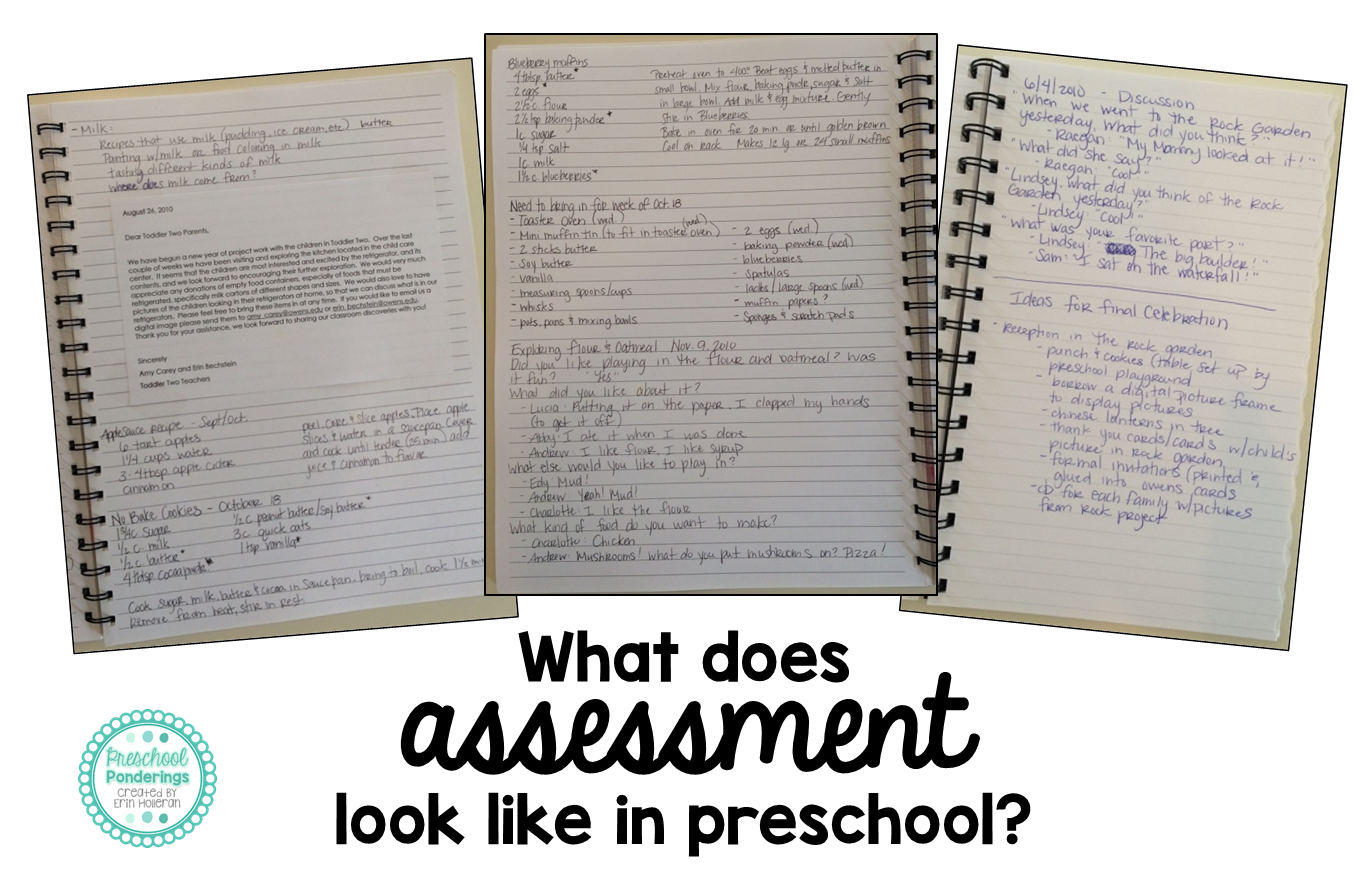 - Milk:
Recipes that use milk (pudding, ice cream, etc) butter
Painting w/milk or food coloring in milk
tasting different kinds of milk
where does milk come from?
August 26, 2010
Dear Toddler Two Parents,
We have begun a new year of project work with the children in Toddler Two. Over the last
couple of weeks we have been visiting and exploring the kitchen located in the child care
center. It seems that the children are most interested and excited by the refrigerator, and its
contents, and we look forward to encouraging their further exploration. We would very much
appreciate any donations of empty food containers, especially of foods that must be
refrigerated, specifically milk cartons of different shapes and sizes. We would also love to have
pictures of the children looking in their refrigerators at home, so that we can discuss what is in our
refrigerators. Please feel free to bring these items in at any time. If you would like to email us a
digital image please send them to amy_carey@owens.edu or erin_bechstein@owens.edu.
Thank you for your assistance, we look forward to sharing our classroom discoveries with you!
Sincerely
Amy Carey and Erin Bechstein
Toddler Two Teachers
Applesauce Recipe - Sept/Oct.
6 tart apples
1 1/4 cups water
3-4tbsp apple cider
cinnamon
peel, core & slice apples. Place apple
slices & water in a saucepan. Cover
and cook until tender (25 min) add
juice & cinnamon to flavor
No Bake Cookies - October 18
1 3/4c. sugar
1/2 c. milk
1/2 c. butter*
4tbsp. cocoa powder*
1/2 c. peanut butter/soy butter*
3c. quick oats
1 tsp vanilla*
Cook sugar, milk, butter & cocoa in saucepan, bring to boil, cook 1 1/2 min
Remove from heat, stir in rest.
Blueberry muffins
4 tbsp. butter*
2 eggs*
2 1/2 c. flour
2 1/2 tsp baking powder*
1c sugar
1/4 tsp salt
1c milk
1 1/2 c. blueberries*
Preheat oven to 400° Beat eggs & melted butter in
small bowl. Mix flour, baking powder, sugar & salt
in large bowl. Add milk & egg mixture. Gently
stir in Blueberries.
Bake in oven for 20 min or until golden brown
Cool on rack. Makes 12 lg. or 24 small muffins
Need to bring in for week of Oct. 18
- Toaster oven (wed.)
- Mini muffin tin (to fit in toaster oven) (wed)
- 2 sticks butter
- Soy butter
- vanilla
- measuring spoons/cups
- whisks
- pots, pans & mixing bowls
- 2 eggs (wed.)
- baking powder (wed)
- blueberries
- Spatulas
- ladles/large spoons (wed)
- muffin papers?
- Sponges & scratch pads
Exploring flour & Oatmeal Nov. 9, 2010
Did you like playing in the flour and oatmeal? Was
it fun? "Yes"
What did you like about it?
- Lucia: Putting it on the paper. I clapped my hands
(to get it off)
- Abby: I ate it when I was done
- Andrew: I like flour, I like syrup
What else would you like to play in?
- Edy: Mud!
- Andrew: Yeah! Mud!
- Charlotte: I like the flour
What kind of food do you want to make?
- Charlotte: Chicken
- Andrew: Mushrooms! What do you put mushrooms on? Pizza!
6/4/2010 - Discussion
"When we went to the Rock Garden
yesterday, what did you think?"
- Raegan: "My Mommy looked at it!"
"What did she say?"
- Raegan: "Cool"
"Lindsey, what did you think of the Rock
Garden yesterday?"
- Lindsey: "Cool"
"What was your favorite part?"
- Lindsey: The big boulder!"
- Sam: "I sat on the waterfall!"
Ideas for final Celebration
- Reception in the rock garden
- punch & cookies (table set up by
preschool playground
- borrow a digital picture frame
to display pictures
- chinese lanterns in tree
- thank you cards/cards w/child's
picture in rock garden
- formal invitations (printed &
glued into owens cards
- CD for each family w/pictures
from Rock project
What does
assessment
look like in preschool?
Preschool
Ponderings
CREATED BY
Erin Holleran